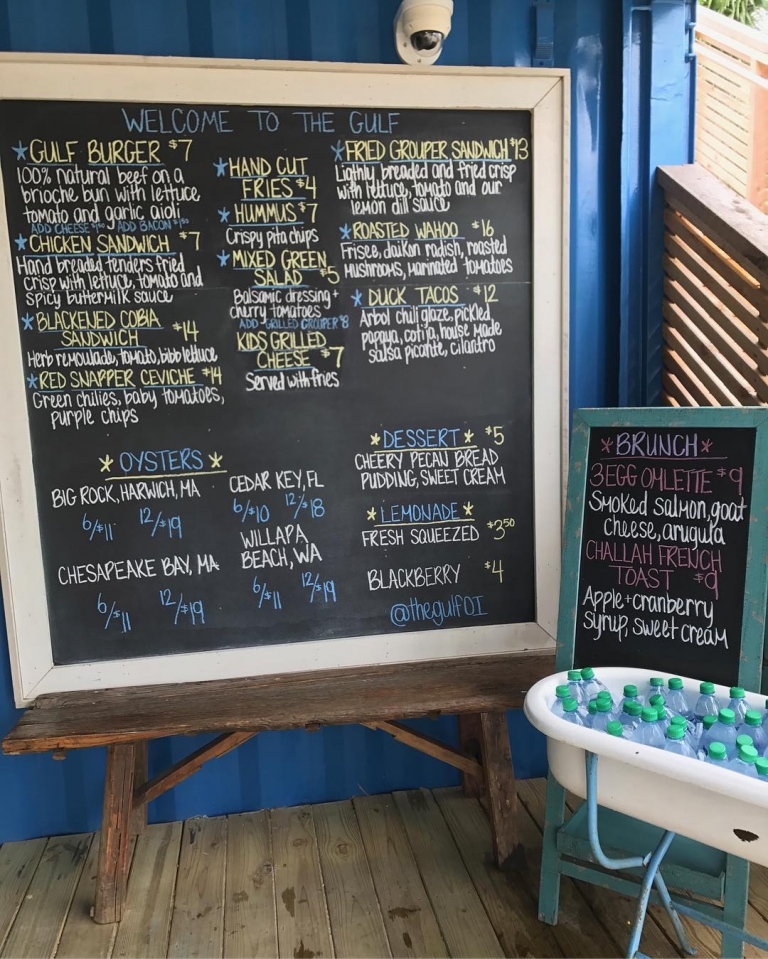 WELCOME TO THE GULF
*GULF BURGER $7
100% natural beef on a
brioche bun with lettuce
tomato and garlic aioli
ADD CHEESE ADD BACON
*CHICKEN SANDWICH $7
Hand breaded tenders fried
crisp with lettuce, tomato and
spicy buttermilk sauce
*BLACKENED COBIA
SANDWICH $14
Herb remoulade, tomato, bibb lettuce
*RED SNAPPER CEVICHE $14
Green chilies, baby tomatoes,
purple chips
*HAND CUT
FRIES $4
*HUMMUS $7
Crispy pita chips
*MIXED GREEN
SALAD $5
Balsamic dressing +
cherry tomatoes
ADD GRILLED GROUPER $8
KIDS GRILLED
CHEESE $7
Served with fries
*FRIED GROUPER SANDWICH $13
Ligthly breaded and fried crisp
with lettuce, tomato and our
lemon dill sauce
*ROASTED WAHOO $16
Frisee, daikon radish, roasted
mushrooms, marinated tomatoes
*DUCK TACOS $12
Arbol chili glaze, pickled
papaya, cotija, house made
salsa picante, cilantro
*OYSTERS*
BIG ROCK, HARWICH, MA
6/$11 12/$19
CHESAPEAKE BAY, MA
6/$11 12/$19
CEDAR KEY, FL
6/$10 12/$18
WILLAPA
BEACH, WA
6/$11 12/$19
*DESSERT* $5
CHEERY PECAN BREAD
PUDDING, SWEET CREAM
*LEMONADE*
FRESH SQUEEZED $3.50
BLACKBERRY $4
@thegulfOI
*BRUNCH*
3 EGG OMLETTE $9
Smoked salmon, goat
cheese, arugula
CHALLAH FRENCH
TOAST $9
Apple + cranberry
syrup, sweet cream